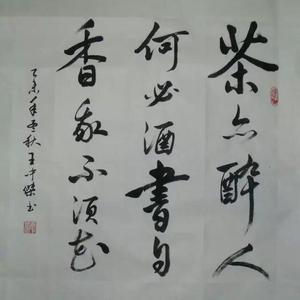 茶亦醉人
何必酒書自
香我不須花
乙未年孟秋王中傑书